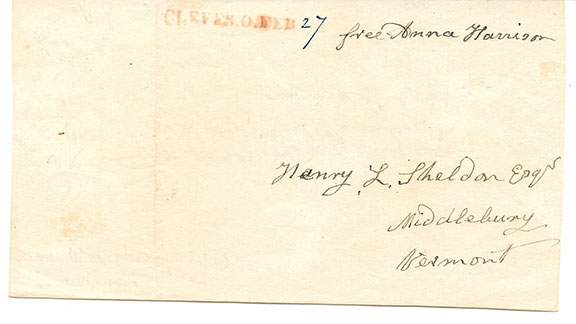 CLEVES. O. FEB 27
free Anna Harrison
Henry L. Sheldon Esqr
Middlebury
Vermont